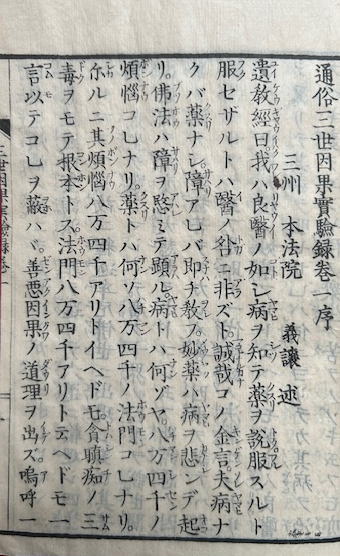 通俗三世因果實驗錄卷一序
三州　本法院　義讓　述
遺教經曰我ハ良醫ノ如シ病ヲ知テ薬ヲ說服スルト
服セザルトハ醫ノ咎ニ非ズト誠哉コノ金言夫病ナ
クバ薬ナシ障アレバ即チ教フ妙薬ハ病ヲ悲ンデ起
リ。佛法ハ障ヲ愍ミテ顕ル病トハ何ゾヤ。八万四千ノ
煩惱コレナリ。薬トハ何ゾ八万四千ノ法門コレナリ。
尓ルニ其煩惱八万四千アリトイヘドモ。貪瞋痴ノ三
毒ヲモテ根本トス法門八万四千アリト云ヘドモ一
言以テコレヲ蔽ハバ。善悪因果ノ道理ヲ出ズ。嗚呼一